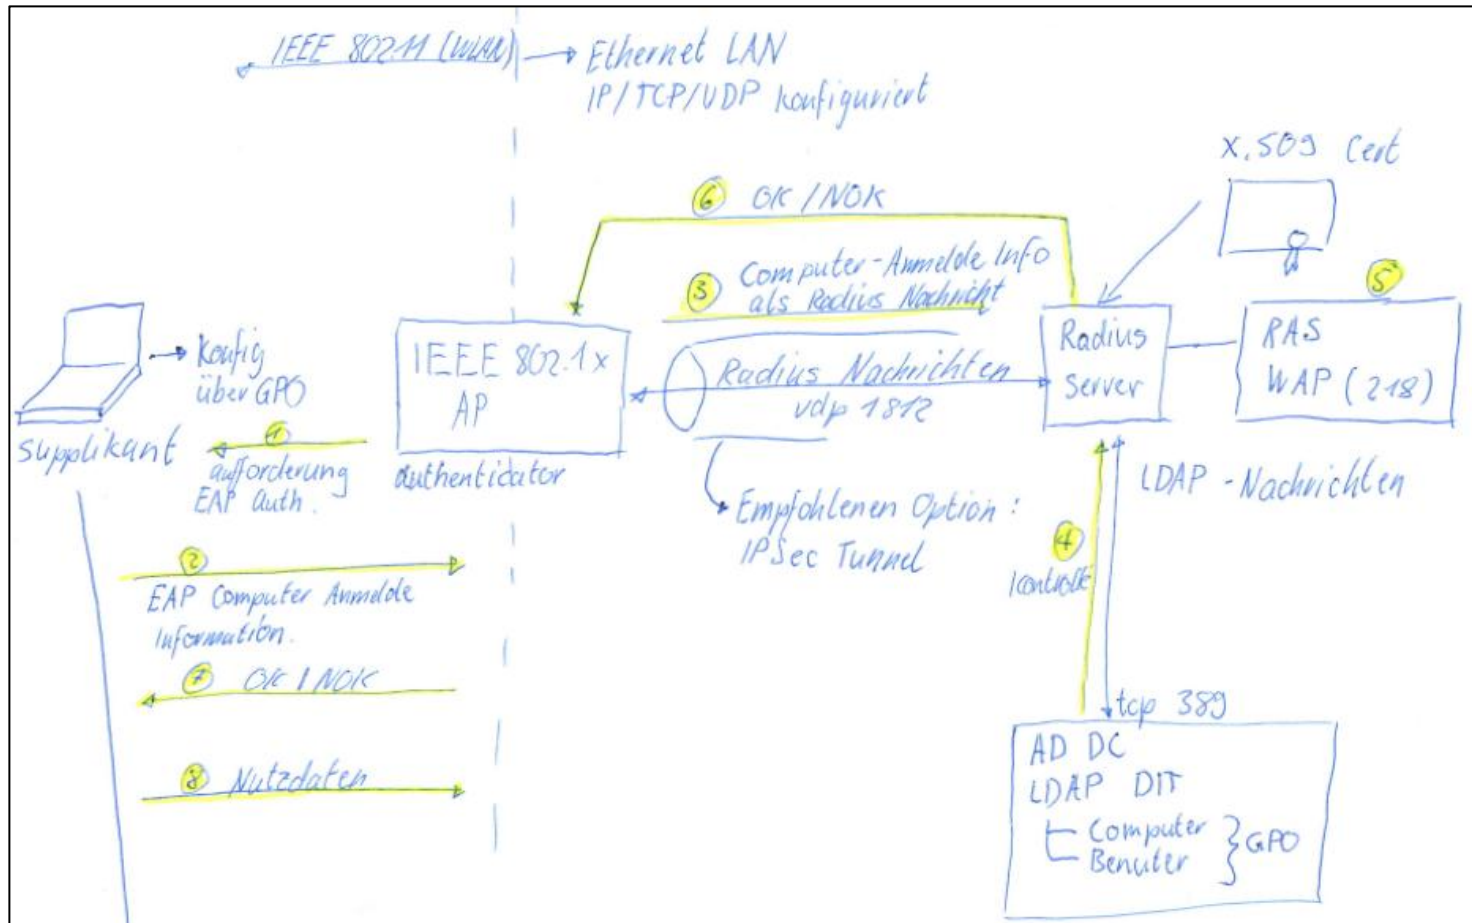 IEEE 802.11 (WLAN)
Ethernet LAN
IP/TCP/UDP konfiguriert
X.509 Cert
6 OK / NOK
3 Computer-Anmelde Info
als Radius Nachricht
5
Konfig
über GPO
IEEE 802.1x
AP
Radius Nachrichten
udp 1812
Radius
Server
RAS
WAP (218)
Supplikant
1
aufforderung
EAP Auth.
authenticator
LDAP - Nachrichten
Empfohlenen Option:
IPSec Tunnel
4
Kontrolle
2
EAP Computer Anmelde
Information.
7 OK / NOK
tcp 389
8 Nutzdaten
AD DC
LDAP DIT
Computer
Benuter
GPO